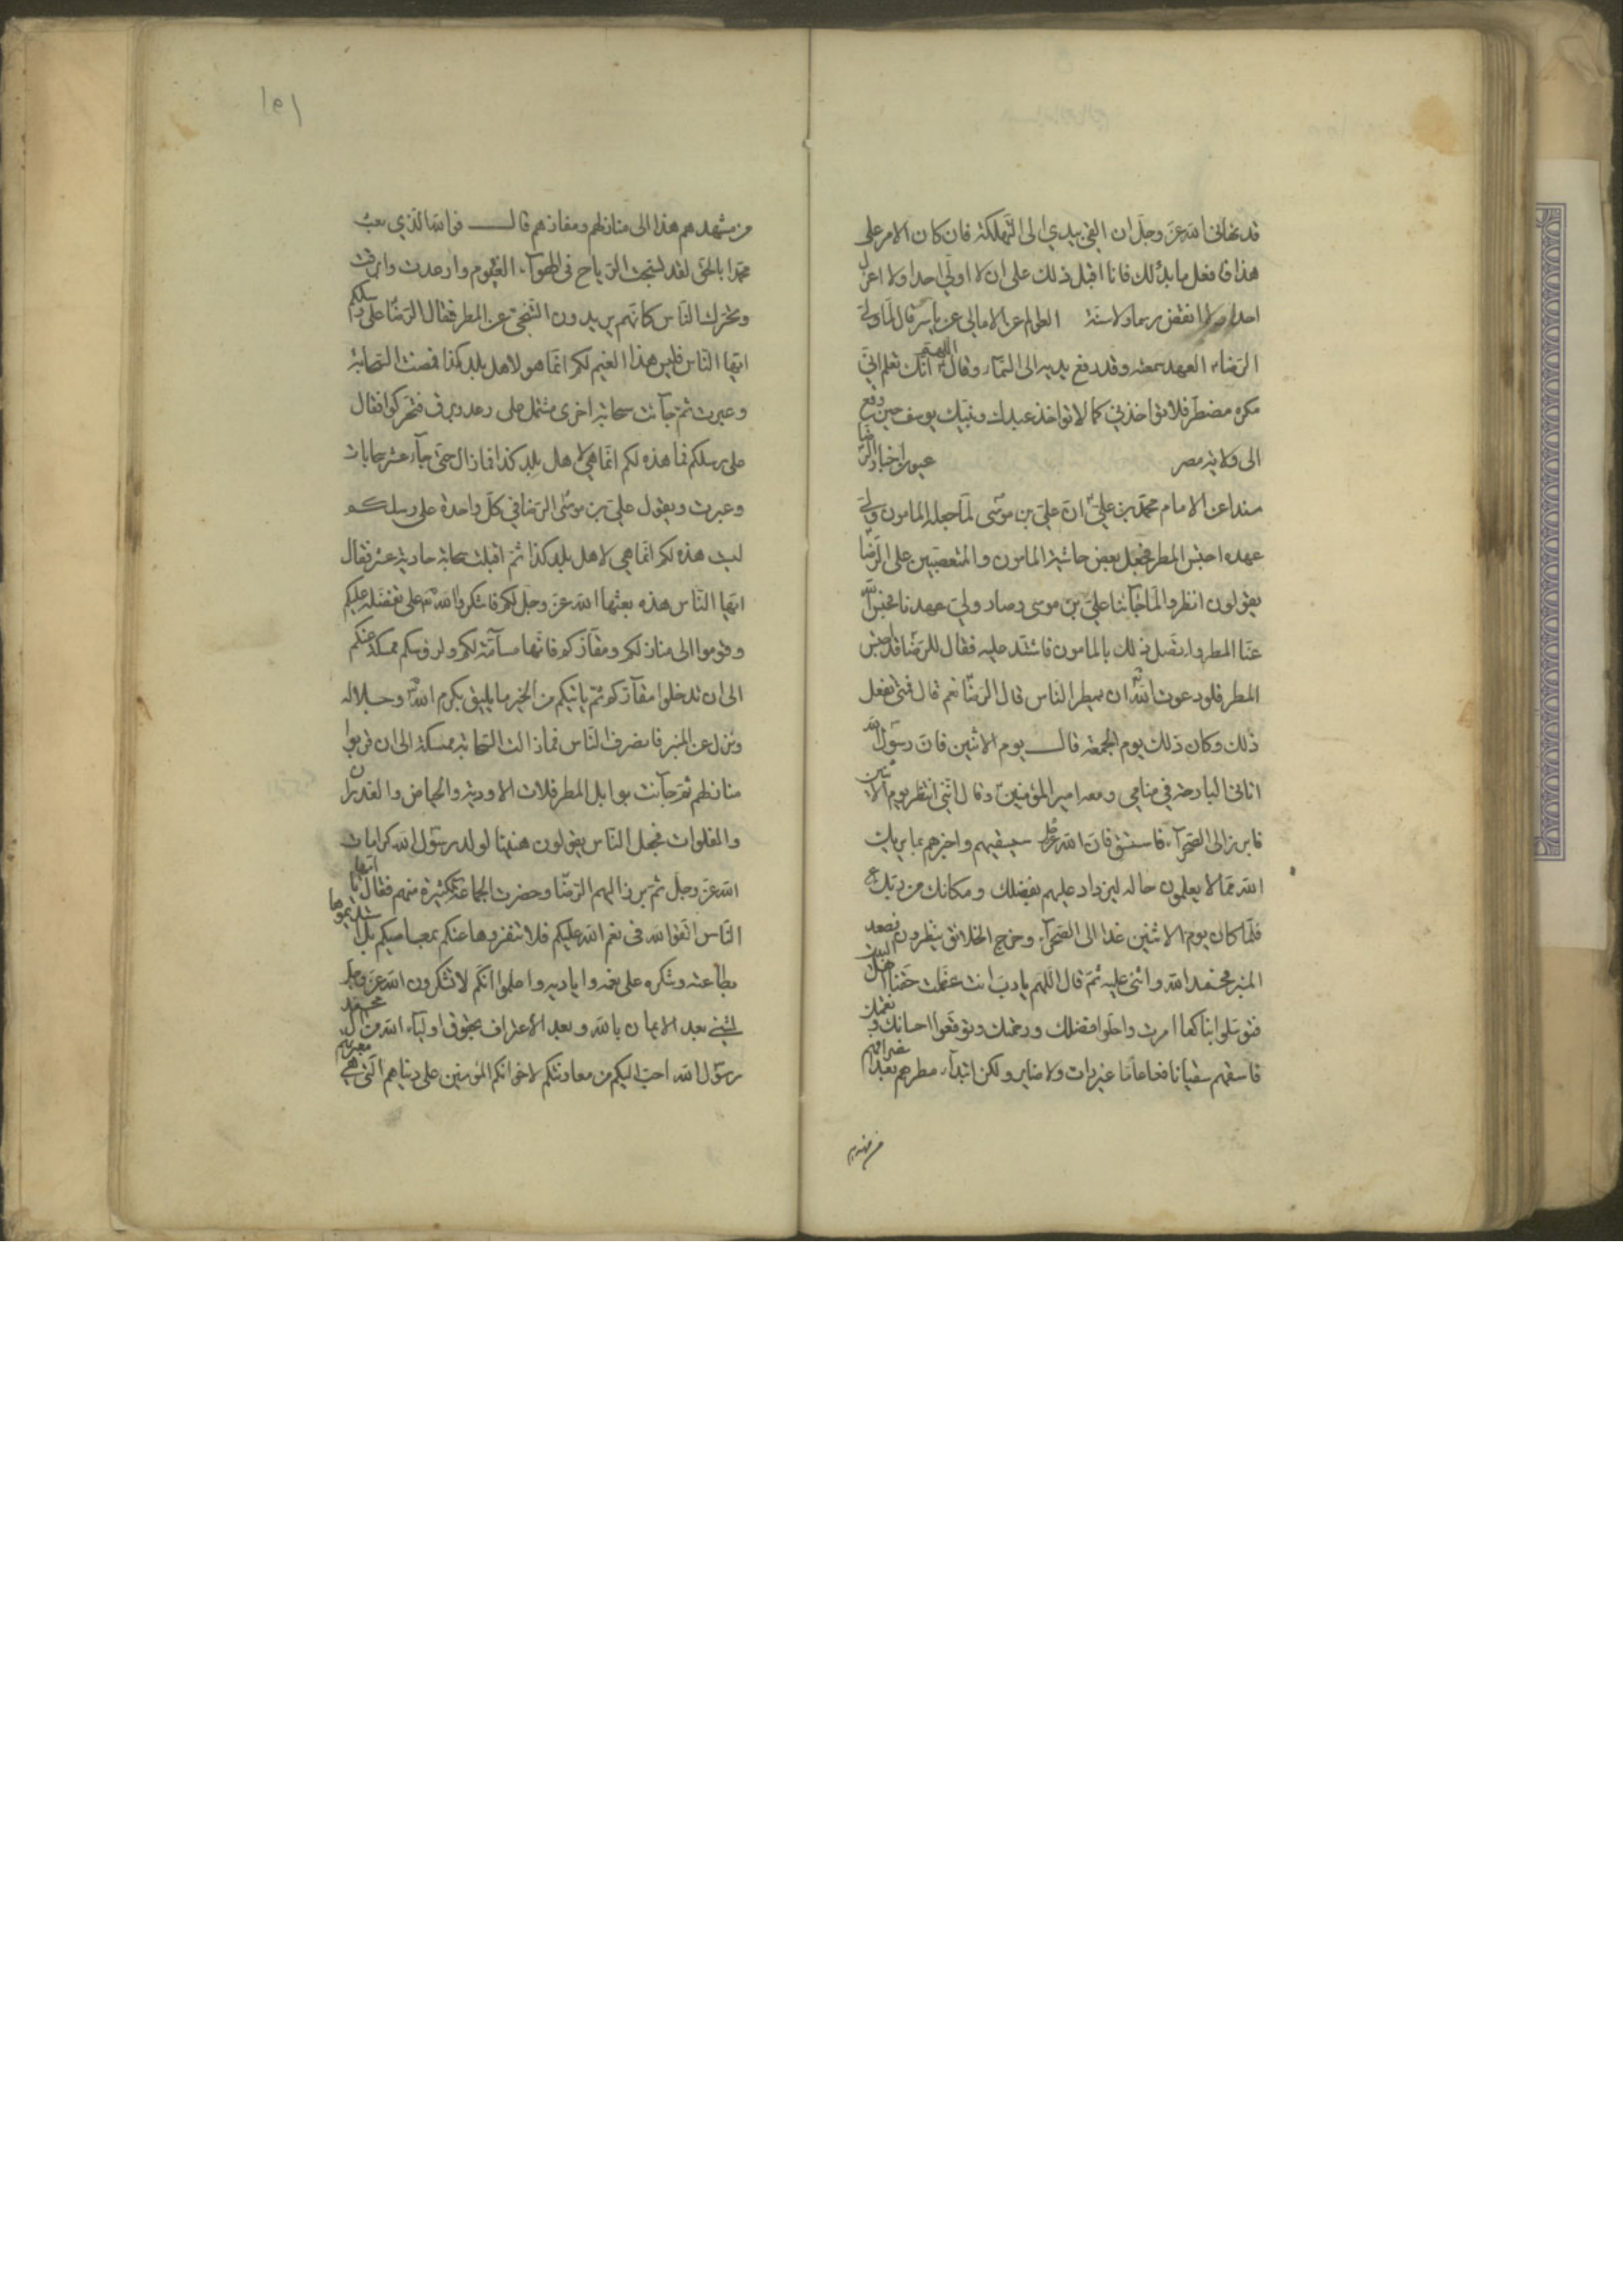 قد نهانى الله عز وجل ان القى بيدي الى التهلكة فان كان الامر على
هذا فافعل ما بدا لك فانا اقبل ذلك على ان لا اولي احدا ولا اعزل
احدا ولا انقض رسما ولا سنة العوالم عن الامالي عن ياسر قال لما ولي
الرضا العهد سمعته وقد رفع يديه الى السماء وقال اللهم انك تعلم اني
مكره مضطر فلا تواخذني كما لا تواخذ عبدك ونبيك يوسف حين وقع
الى ولاية مصر عيون اخبار الرضا
مسندا عن الامام محمد بن علي ان علي بن موسى لما جعله المامون ولي
عهده احتبس المطر فجعل بعض حاشية المامون والمتعصبين على الرضا
يقولون انظروا لما جآئنا علي بن موسى وصار ولي عهدنا فحبس الله
عنا المطر واتصل ذلك بالمامون فاشتد عليه فقال للرضا قد احتبس
المطر فلو دعوت الله ان يمطر الناس قال الرضا نعم قال فمتى تفعل
ذلك وكان ذلك يوم الجمعة قال يوم الاثنين فان رسول الله
اتانى البارحة في منامي ومعه امير المؤمنين وقال يا بني انتظر يوم الاثنين
فابرز الى الصحرآء فاستسق فان الله عز وجل سيسقيهم واخبرهم بما يريك
الله مما لا يعلمون حاله ليزداد علمهم بفضلك ومكانك من ربك
فلما كان يوم الاثنين غدا الى الصحرآء وخرج الخلائق ينظرون فصعد
المنبر فحمد الله واثنى عليه ثم قال اللهم يا رب انت عظمت حقنا اهل البيت
فتوسلوا بنا كما امرت واملوا فضلك ورحمتك وتوقعوا احسانك ونعمتك
فاسقهم سقيا نافعا عاما غير رايث ولا ضاير وليكن ابتدآء مطرهم بعد انصرافهم
من مشهدهم
من مشهدهم هذا الى منازلهم ومقارهم قال فوالله الذي بعث
محمدا بالحق لقد نسجت الرياح فى الهوآء الغيوم وارعدت وابرقت
وتحرك الناس كانهم يريدون التنحي عن المطر فقال الرضا على رسلكم
ايها الناس فليس هذا الغيم لكم انما هو لاهل بلد كذا فمضت السحابة
وعبرت ثم جآئت سحابة اخرى مشتمل على رعد وبرق فتحركوا فقال
على رسلكم فما هذه لكم انما هي لاهل بلد كذا فما زال حتى جآء عشر سحابات
وعبرت ويقول علي بن موسى الرضا في كل واحدة على رسلكم
ليست هذه لكم انما هي لاهل بلد كذا ثم اقبلت سحابة حادية عشر فقال
ايها الناس هذه بعثها الله عز وجل لكم فاشكروا لله على تفضله عليكم
وقوموا الى منازلكم ومقاركم فانها مسامتة لكم ولرؤسكم ممسكة عنكم
الى ان تدخلوا مقاركم ثم ياتيكم من الخير ما يليق بكرم الله وجلاله
ونزل عن المنبر فانصرف الناس فما زالت السحابة ممسكة الى ان قربوا
منازلهم ثم جآئت بوابل المطر فملات الاودية والحياض والغدران
والفلوات فجعل الناس يقولون هنيئا لولد رسول الله كرامات
الله عز وجل ثم برز اليهم الرضا وحضرت الجماعة كثيرة منهم فقال يا ايها
الناس اتقوا الله فى نعم الله عليكم فلا تنفروها عنكم بمعاصيكم بل استديموها
بطاعته وشكره على نعمه واياديه واعلموا انكم لا تشكرون الله عز وجل
لشئ بعد الايمان بالله وبعد الاعتراف بحقوق اوليآء الله من آل محمد
رسول الله احب اليكم من معاونتكم لاخوانكم المؤمنين على دنياهم التى هي معبر لهم